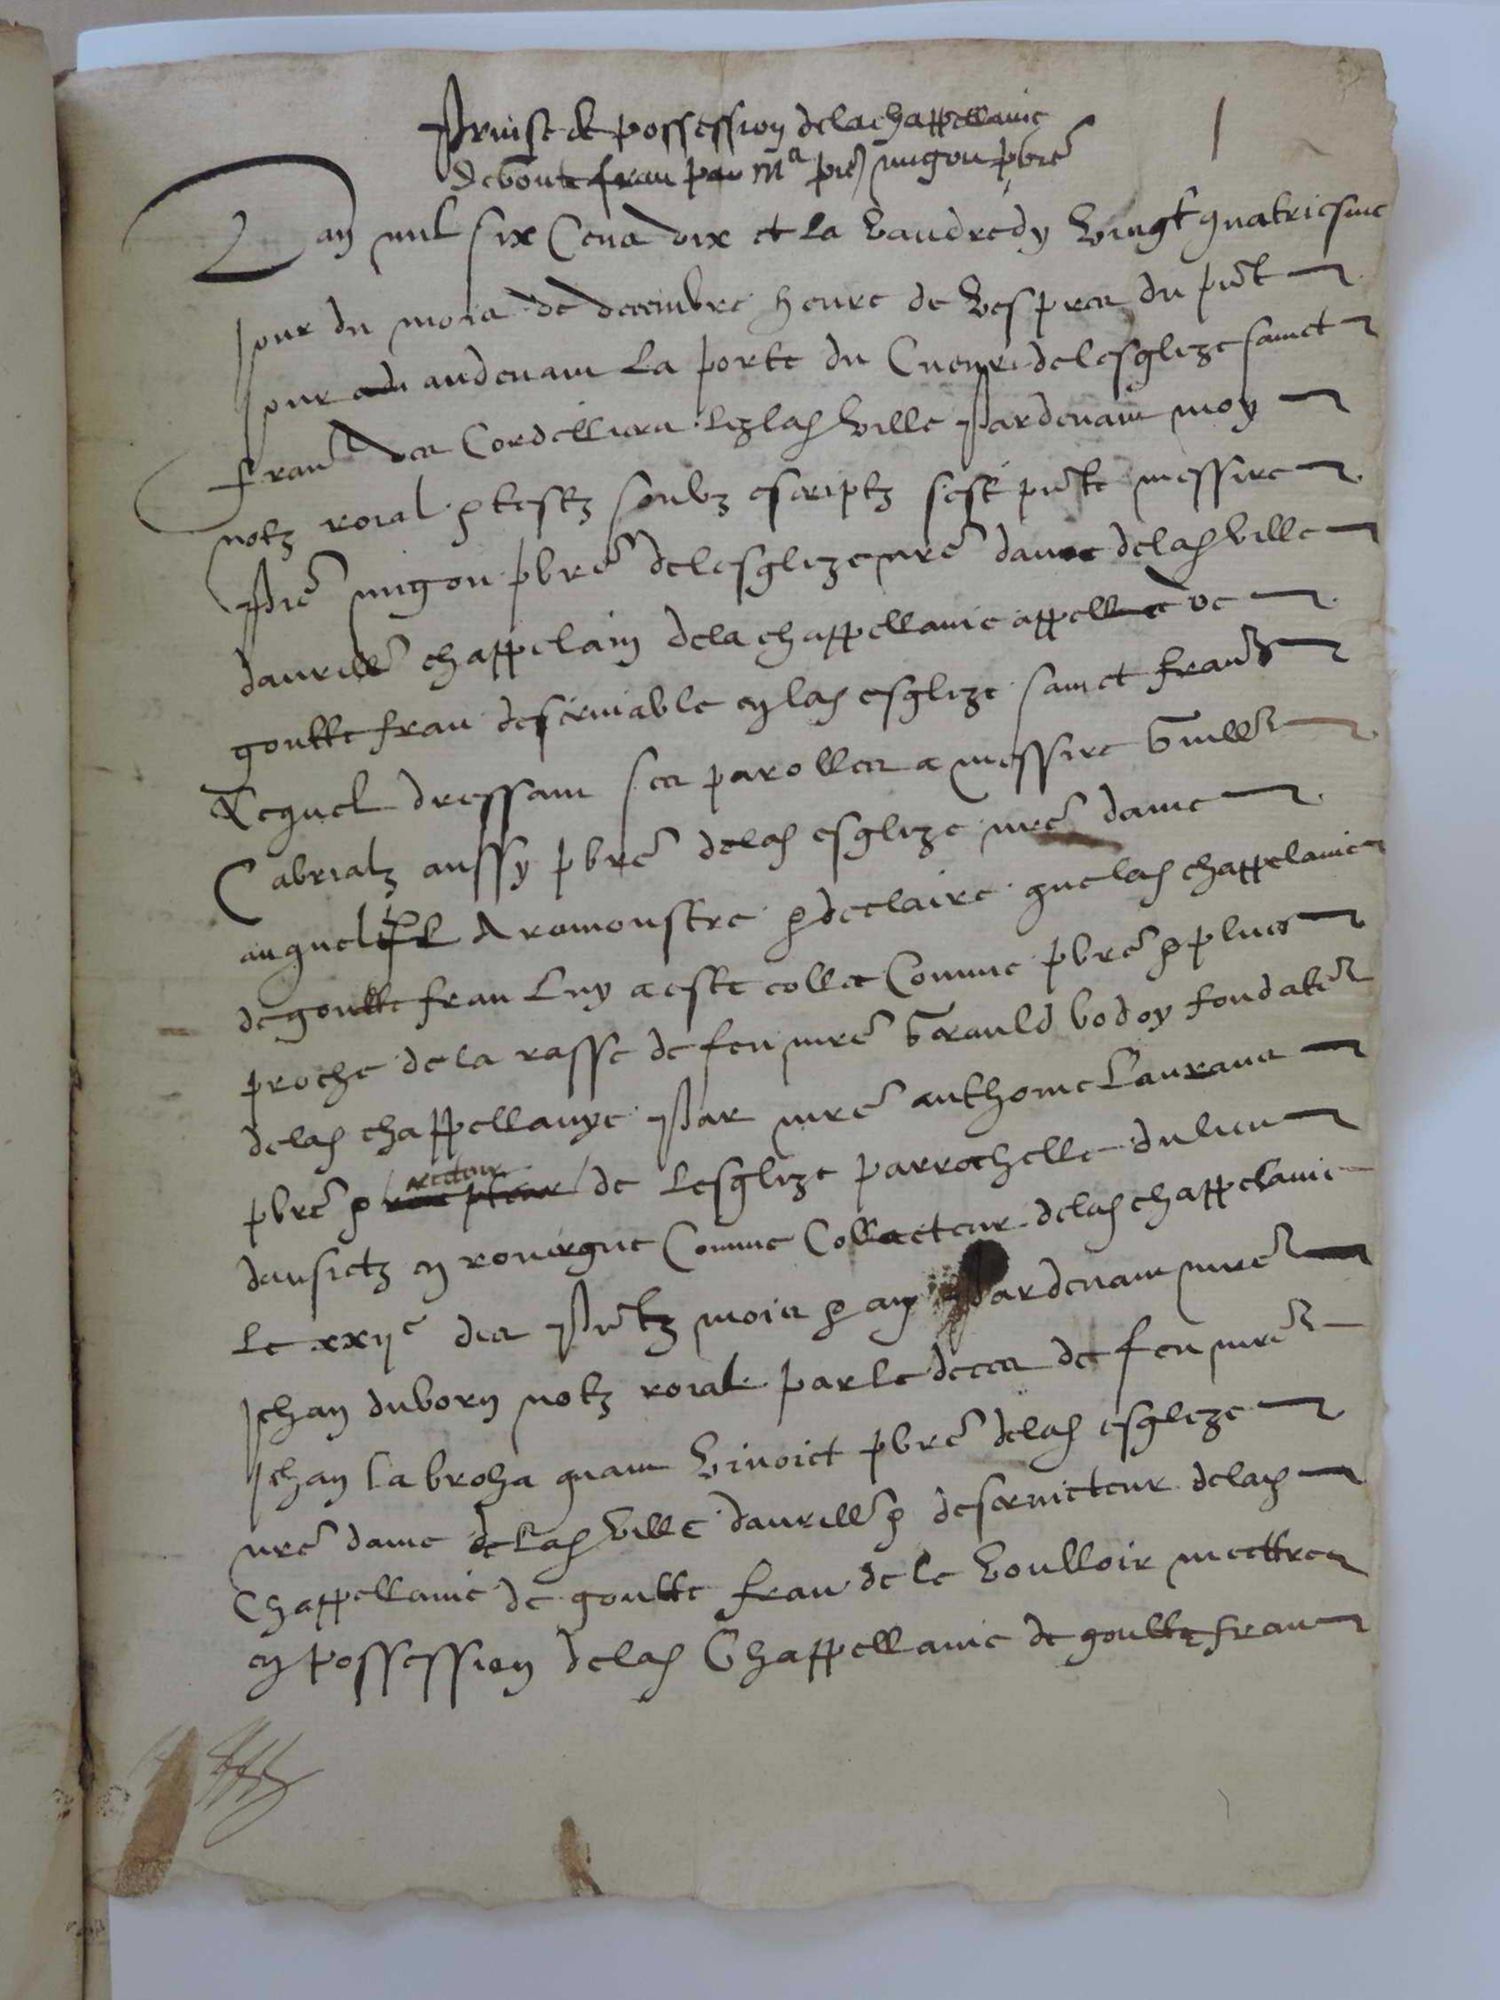 Prinse de possession de la chappellanie
de Goutte frau par Mr pre migou pbre
1
L an mil six cens dix et la vandredy vingt quatriesme
jour du mois de decembre heure de vespres du pnt
jour au audevant la porte du Cueur de lesglize sainct
frans des Cordelliers lez lad ville pardevant moy
notz roial & testz soubz escriptz sest pnte messire
Pre migou pbre de lesglize nre dame de lad ville
daurilh chappelain de la chappellanie appellee de
goutte frau deserviable en lad esglize sainct frans
Lequel dressant ses parolles a messire Guille
Cabrialz aussy pbre de lad esglize nre dame
auquel a remonstre & declaire que lad chappelanie
de goutte frau luy a este colle comme pbre & plus
proche de la rasse de feu mre Gerauld bodoy fondater
de lad chappellanye par mre anthoine Laurans
pbre & recteur de lesglize parrochelle du lieu
densietz en rouergue comme collecteur de lad chappelanie
le xxije des pntz mois & an pardevant mre
Jehan duborn notz roial par le deces de feu mre
Jehan labroha quant vivoict pbre de lad esglize
nre dame de lad ville daurilh & deservicteur de lad
Chappellanie de goutte frau de le voulloir mettre
en possession de lad Chappellanie de goutte frau